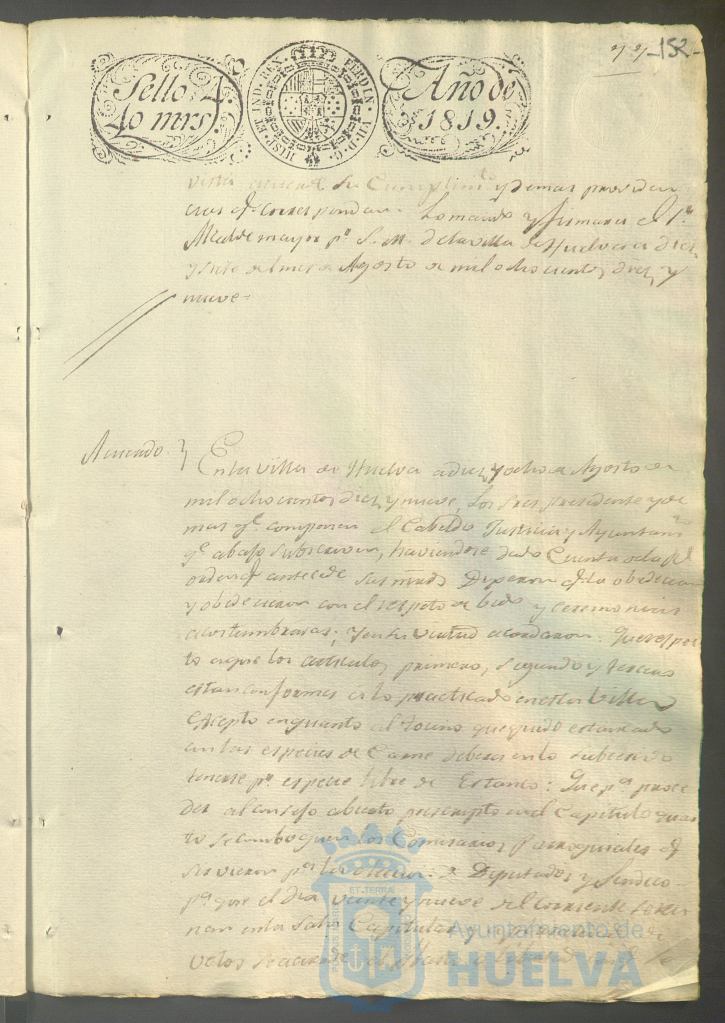 72 -152-
Sello 4.º
40 mrs.
HISP. ET IND. REX. FERDIN. VII. D. G.
Año de
1819.
vista acuerde su Cumplimto. y demas providen
cias qe. correspondan. Lo mando y firmara el Sr.
Alcalde mayor pr. S. M. de la villa de Huelva a diez
y siete del mes de Agosto de mil ochocientos diez y
nueve.
Acuerdo
En la villa de Huelva a diez y ocho de Agosto de
mil ochocientos diez y nueve, Los Sres. Presidente y de
mas qe. componen el Cabildo Justicia y Ayuntamto.
qe. abajo subscriven, haviendose dado Cuenta de la Rl.
orden qe. antecede Sus mrds. Dijeron qe. la obedecian
y obedecieron con el respeto debido y ceremonias
acostumbradas; y en su virtud acordaron: Que respec
to a que los articulos primero, segundo y tercero
estan conformes a lo practicado en esta Villa
excepto en quanto al tocino que pudo estancado
en las especies de Carne debera en lo subcesivo
tenerse pr. especie libre de Estanco: Que pa. proce
der al consejo abierto prescripto en el Capitulo quar
to se comboquen los Comisarios Parroquiales qe.
sirvieron pa. la eleccion de Diputados y Sindico
pa. que el dia veinte y nueve del corriente
nan en la Sala Capitular y a pluralidad de
votos se acuerde
ET TERRÆ
Ayuntamiento de
HUELVA